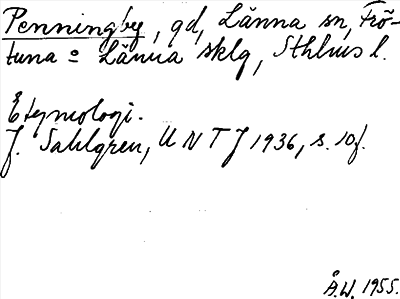 Penningby, gd, Länna sn, Frö-
tuna o Länna sklg, Sthlms l.
Etymologi.
J. Sahlgren, UNTJ 1936, s. 10f.
Å.W. 1955.